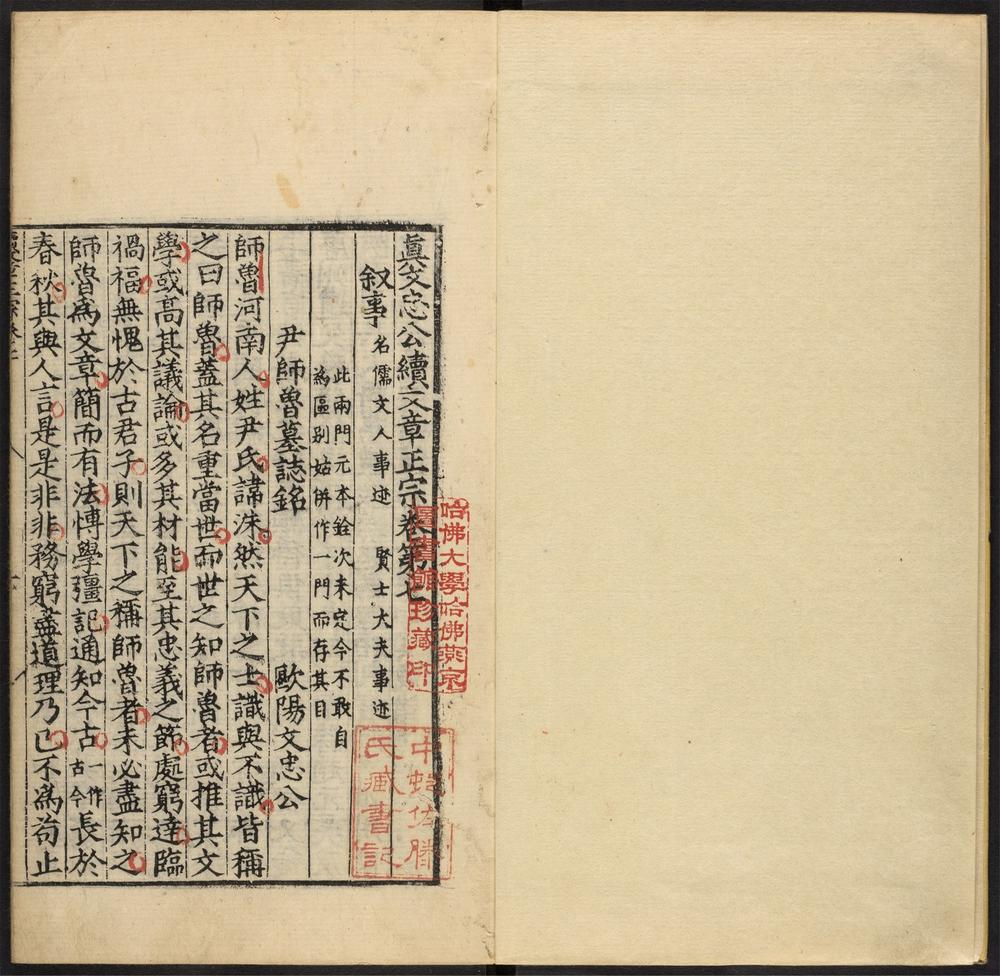 眞文忠公續文章正宗卷第七
叙事 名儒文人事迹 賢士大夫事迹
此兩門元本銓次未定今不敢自
為區别姑併作一門而存其目
尹師魯墓誌銘 歐陽文忠公
師魯河南人姓尹氏諱洙然天下之士識與不識皆稱
之曰師魯蓋其名重當世而世之知師魯者或推其文
學或高其議論或多其材能至其忠義之節處窮達臨
禍福無愧於古君子則天下之稱師魯者未必盡知之
師魯爲文章簡而有法慱學彊記通知今古一作古今長於
春秋其與人言是是非非務窮盡道理乃已不爲苟止
哈佛大學哈佛燕京
圖書館珍藏印
氏藏書記